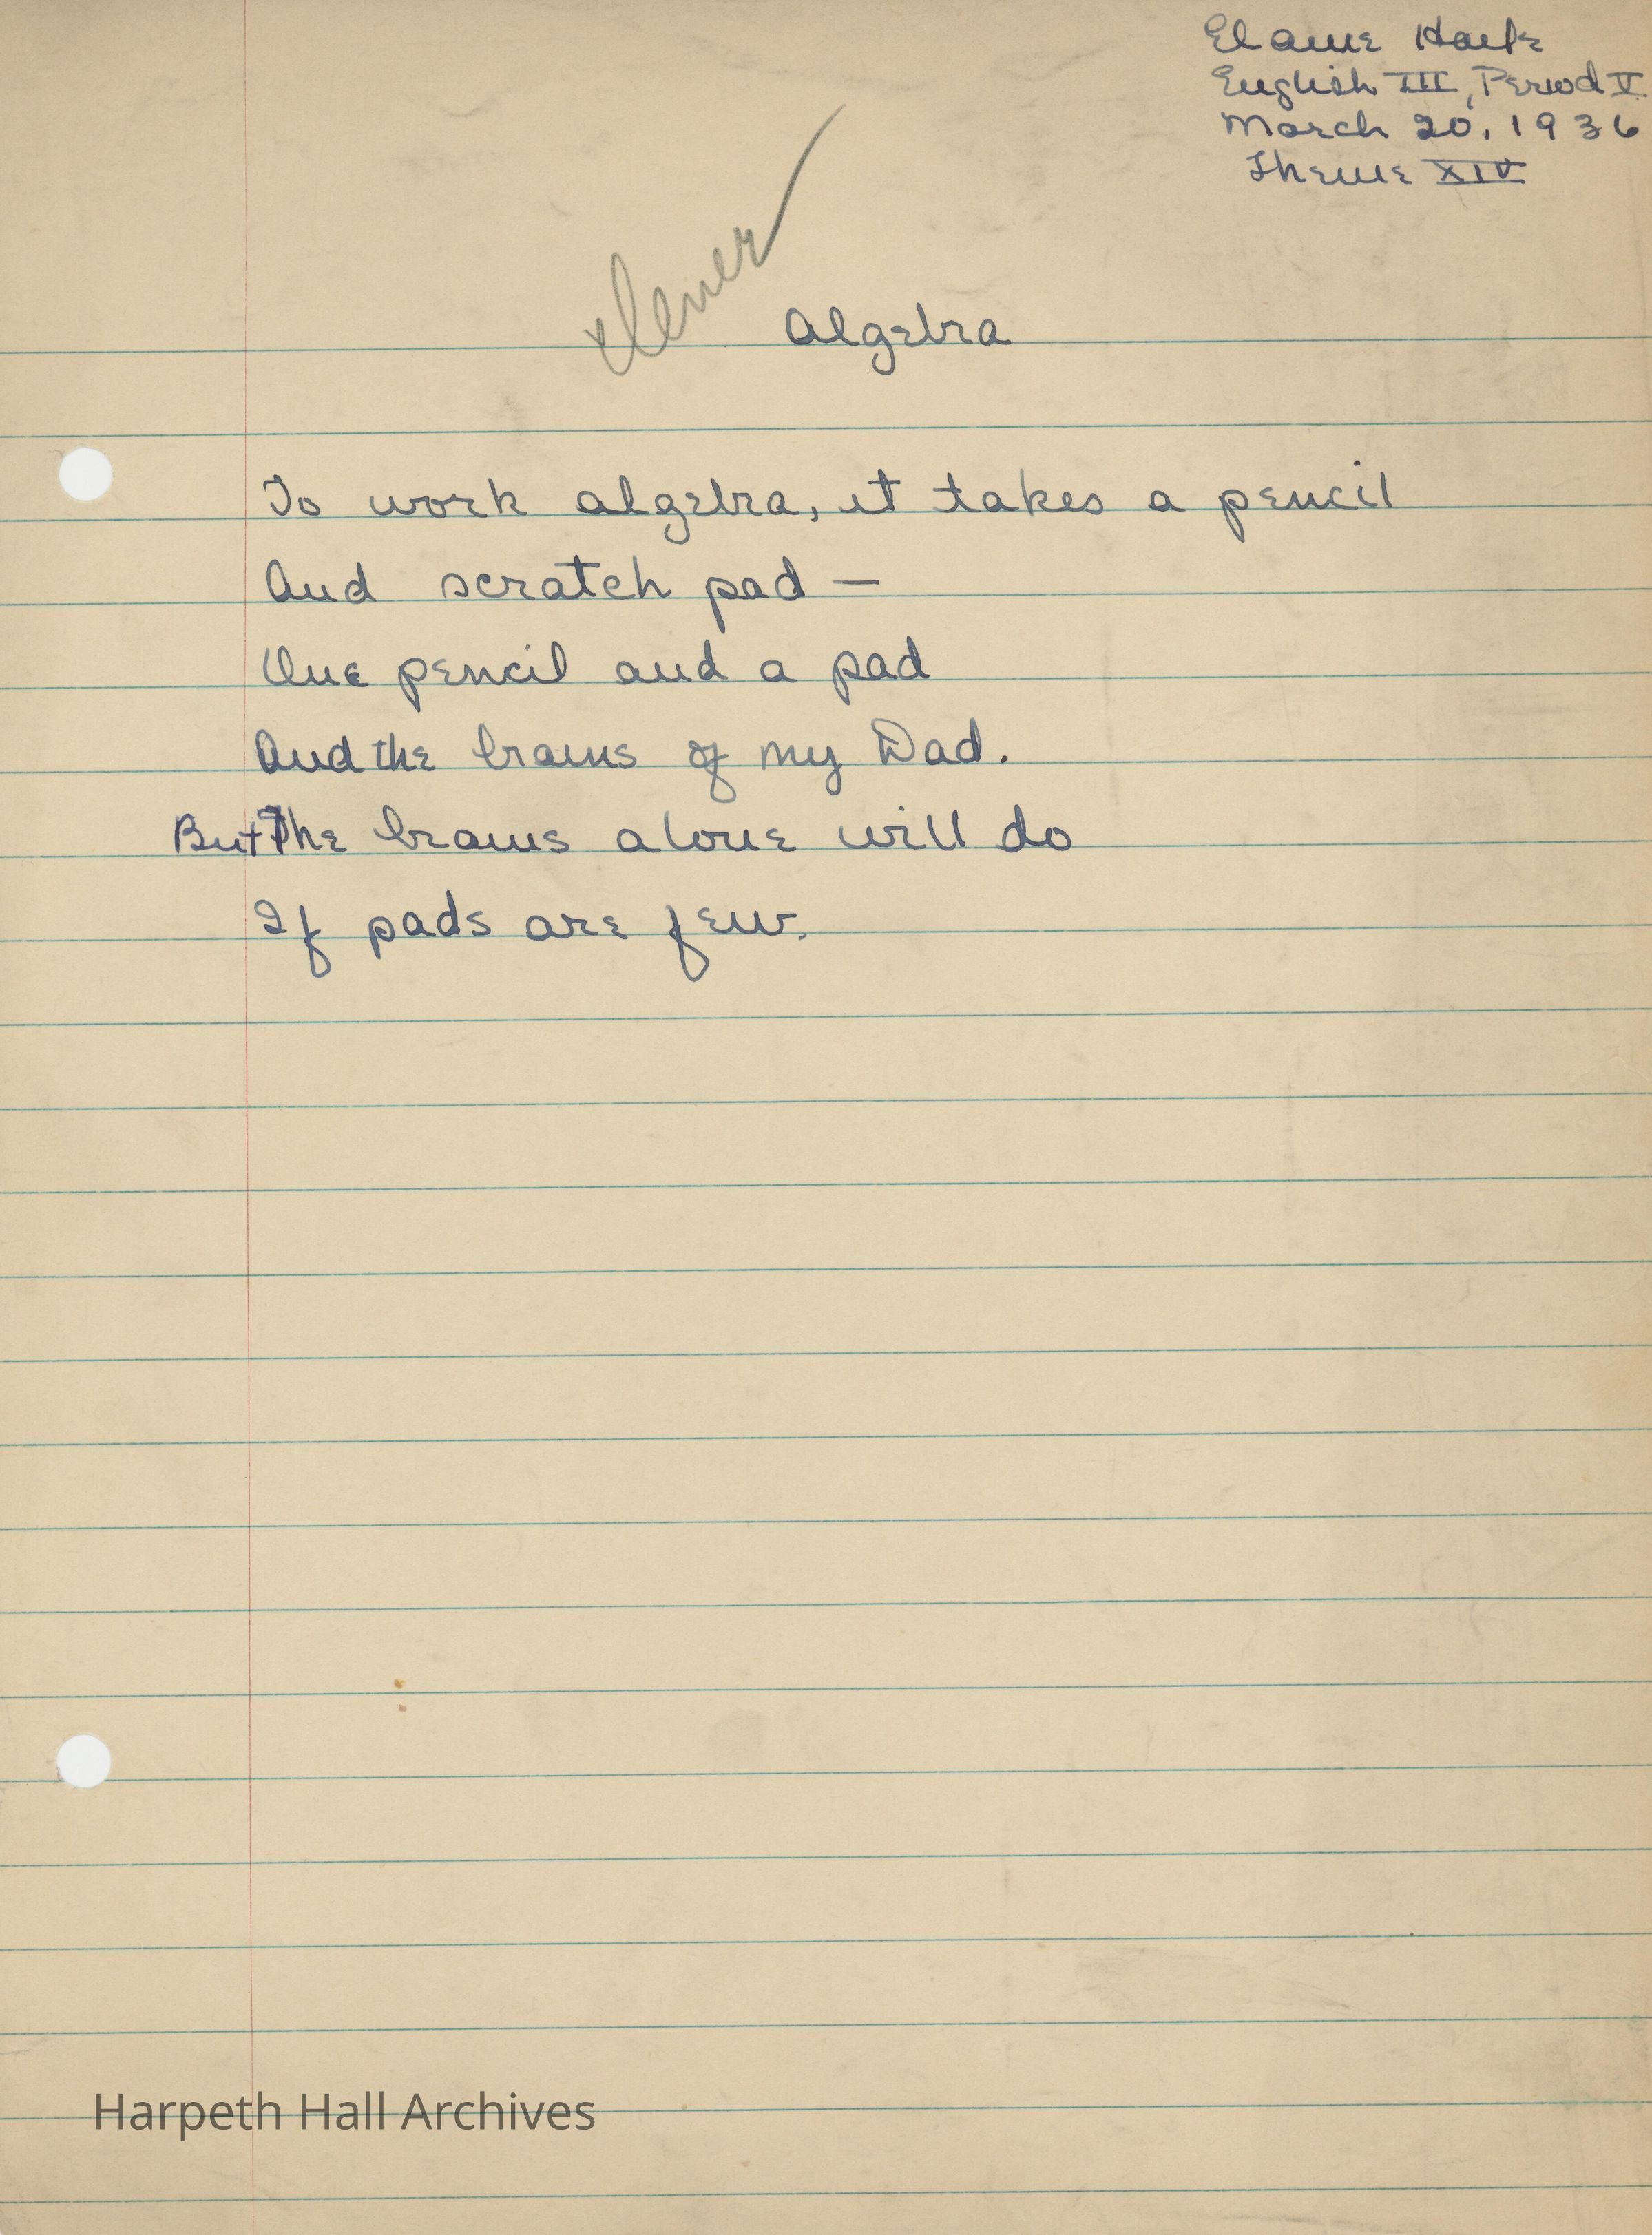 Elaine Haile
English III, Period V
March 20, 1936
Theme XIV
Clever
Algebra
To work algebra, it takes a pencil
And scratch pad —
One pencil and a pad
And the brains of my Dad.
But The brains alone will do
If pads are few.
Harpeth Hall Archives